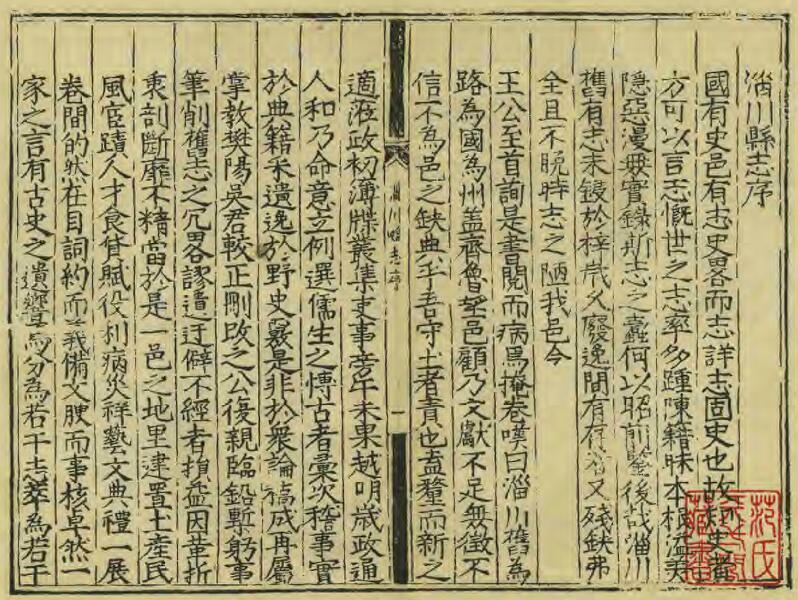 淄川縣志序
國有史邑有志史畧而志詳志固史也故知史者
方可以言志慨世之志率多踵陳籍昧本根溢美
隱惡漫無實錄斯志之蠹何以昭前鑒後哉淄川
舊有志未鋟於梓歲久廢逸間有存者又殘缺弗
全且不脫時志之陋我邑今
王公至首詢是書閱而病焉掩卷嘆曰淄川舊為
路為國為州蓋齊魯望邑顧乃文獻不足無徵不
信不為邑之缺典乎吾守土者責也盍釐而新之
淄川縣志序
一
適蒞政初簿牒叢集吏事旁午未果越明歲政通
人和乃命意立例選儒生之愽古者彙次稽事實
於典籍采遺逸於野史覈是非於衆論稿成再屬
掌教樊陽吳君較正刪改之公復親臨鉛槧躬事
筆削舊志之冗畧謬遺迂僻不經者損益因革折
衷剖斷靡不精當於是一邑之地里建置土產民
風宦蹟人才食貨賦役利病災祥藝文典禮一展
卷間的然在目詞約而義備文腴而事核卓然一
家之言有古史之遺響焉分為若干志萃為若干
范氏
藏書